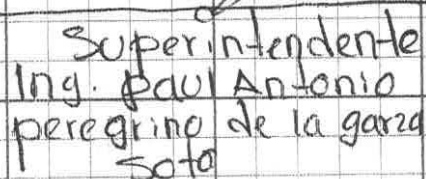 Superintendente
Ing. Paul Antonio
peregrino de la garza
soto